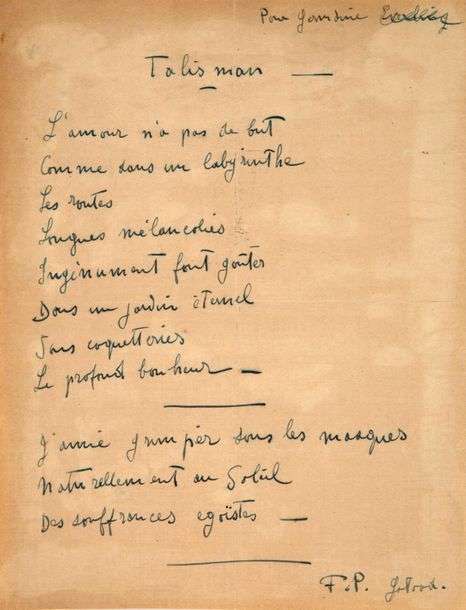 Pour
Talisman —
L'amour n'a pas de but
Comme dans un labyrinthe
Les routes
Longues mélancolies
Ingénument font goûter
Dans un jardin éternel
Sans coquetteries
Le profond bonheur —
J'aime grimper sous les masques
Naturellement au Soleil
Des souffrances egoïstes —
F.P.